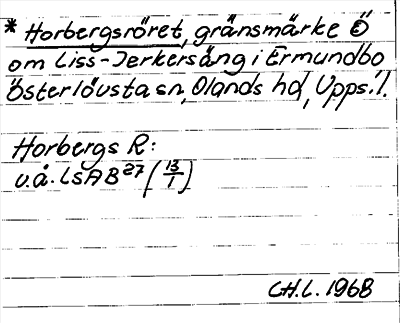 * Horbergsröret, gränsmärke Ö
om Liss-Jerkersäng i Ermundbo
Österlövsta sn, Olands hd, Upps. l.
Horbergs R:
u.å. LSA B 27 (13/1)
C.H.L. 1968